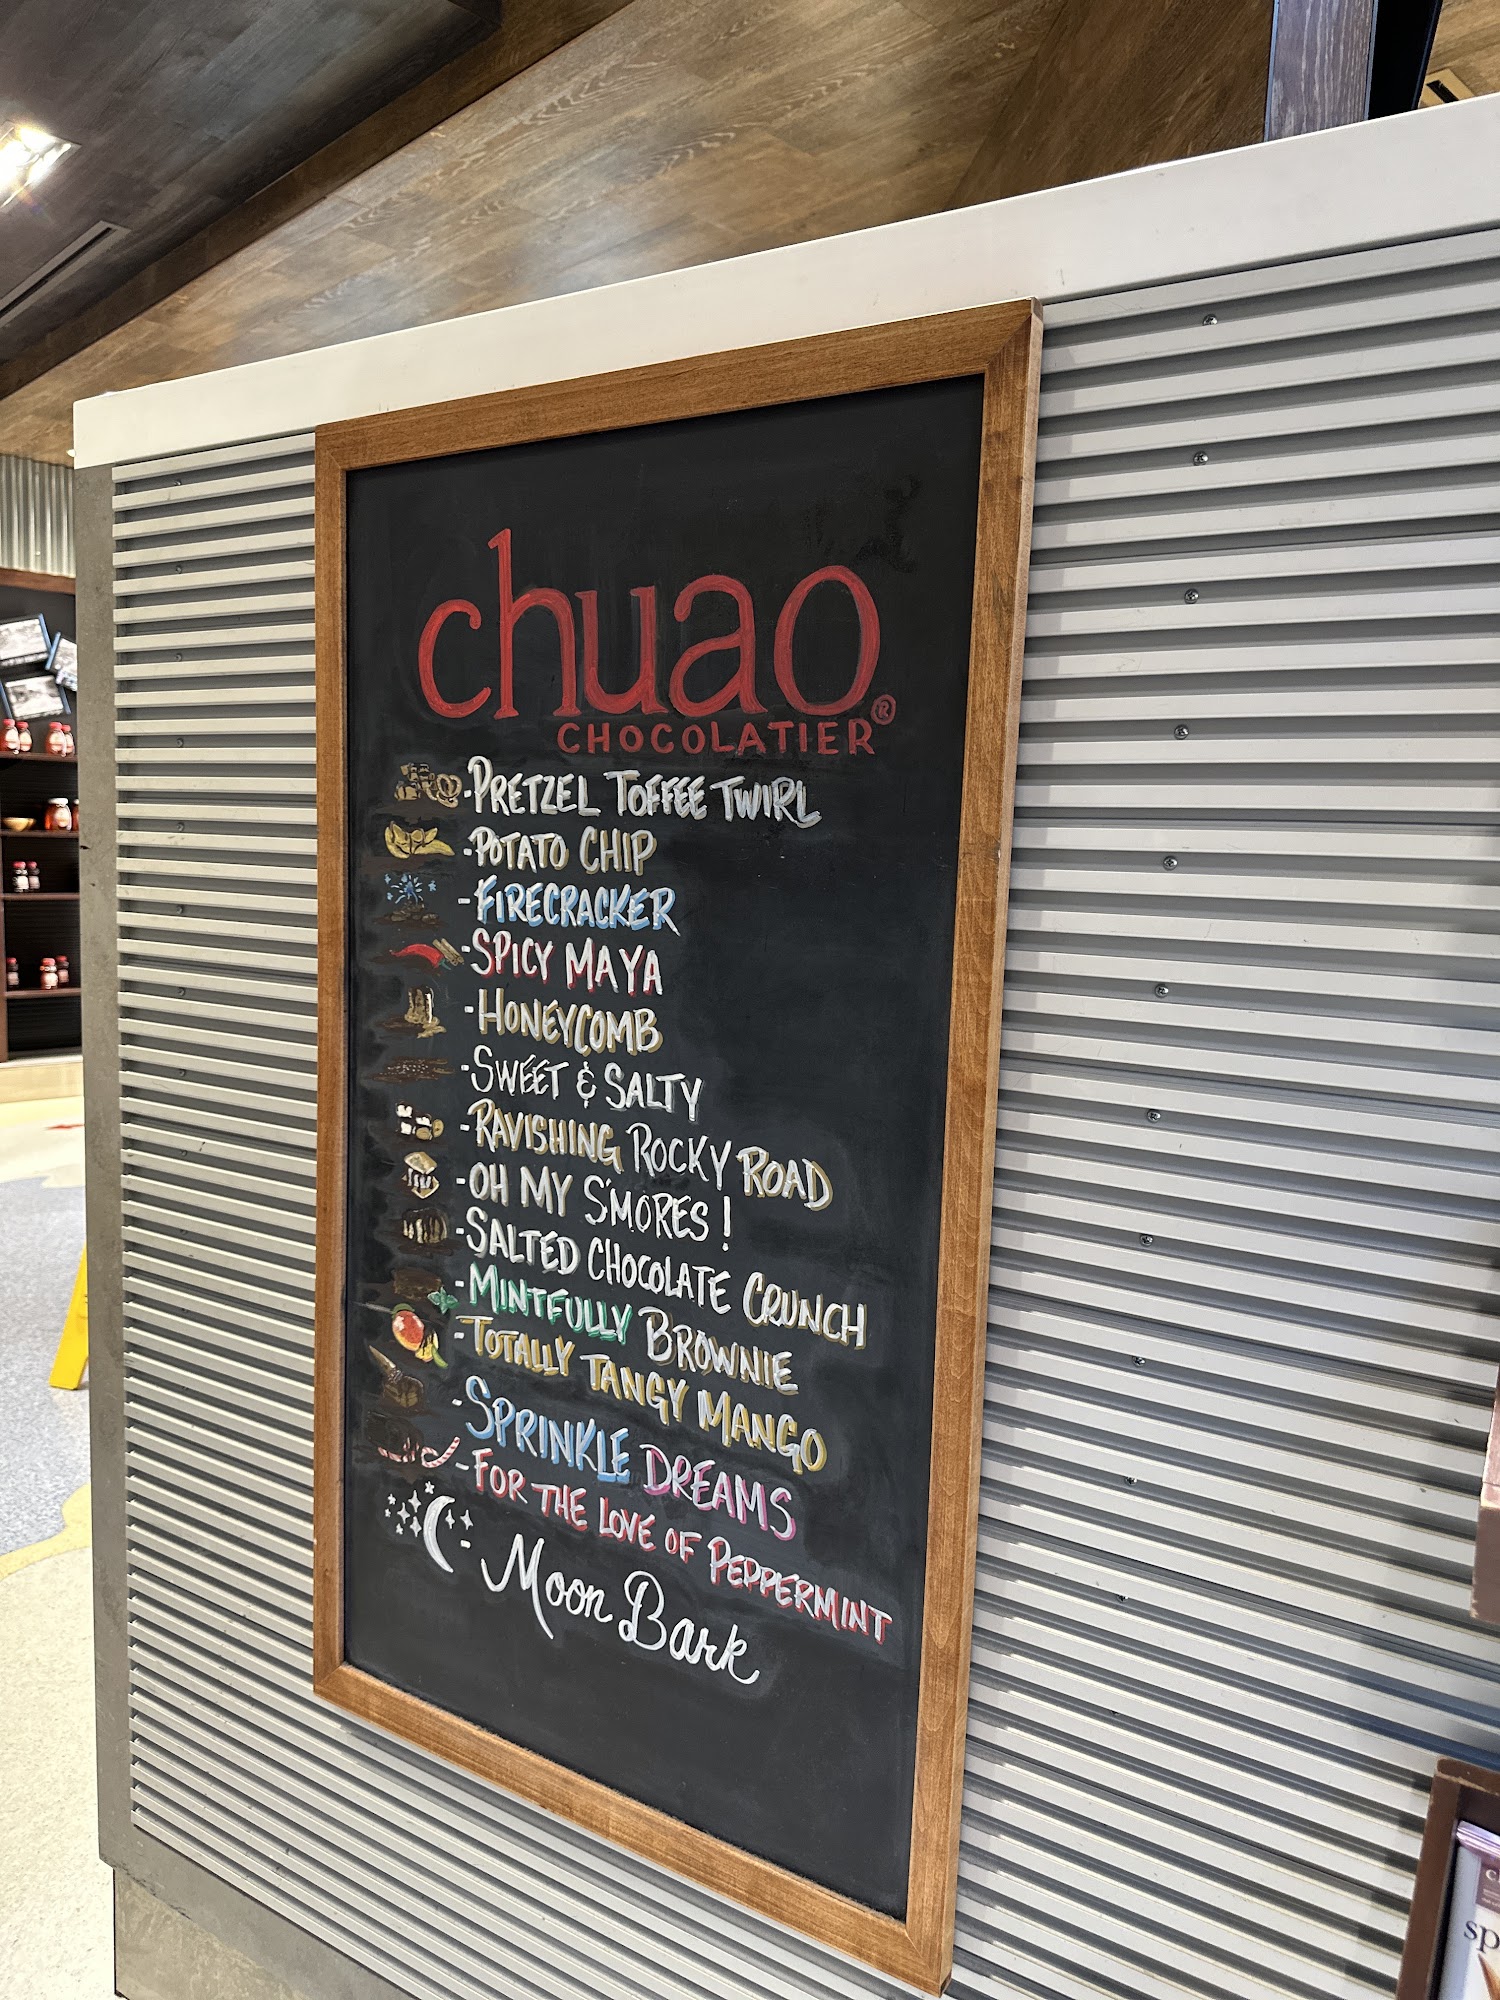 chuao®
CHOCOLATIER
-PRETZEL TOFFEE TWIRL
-POTATO CHIP
-FIRECRACKER
-SPICY MAYA
-HONEYCOMB
-SWEET & SALTY
-RAVISHING ROCKY ROAD
-OH MY S'MORES!
-SALTED CHOCOLATE CRUNCH
-MINTFULLY BROWNIE
-TOTALLY TANGY MANGO
-SPRINKLE DREAMS
-FOR THE LOVE OF PEPPERMINT
-Moon Bark